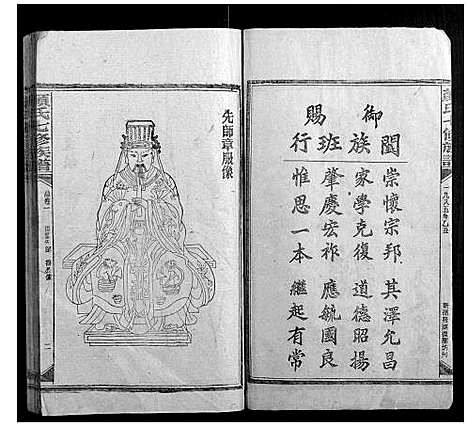 御
賜
闔族班行
崇懷宗邦 其澤允昌
家學克復 道德昭揚
肇慶宏祚 應毓國良
惟思一本 繼起有常
先師章服像
顏氏七修族譜